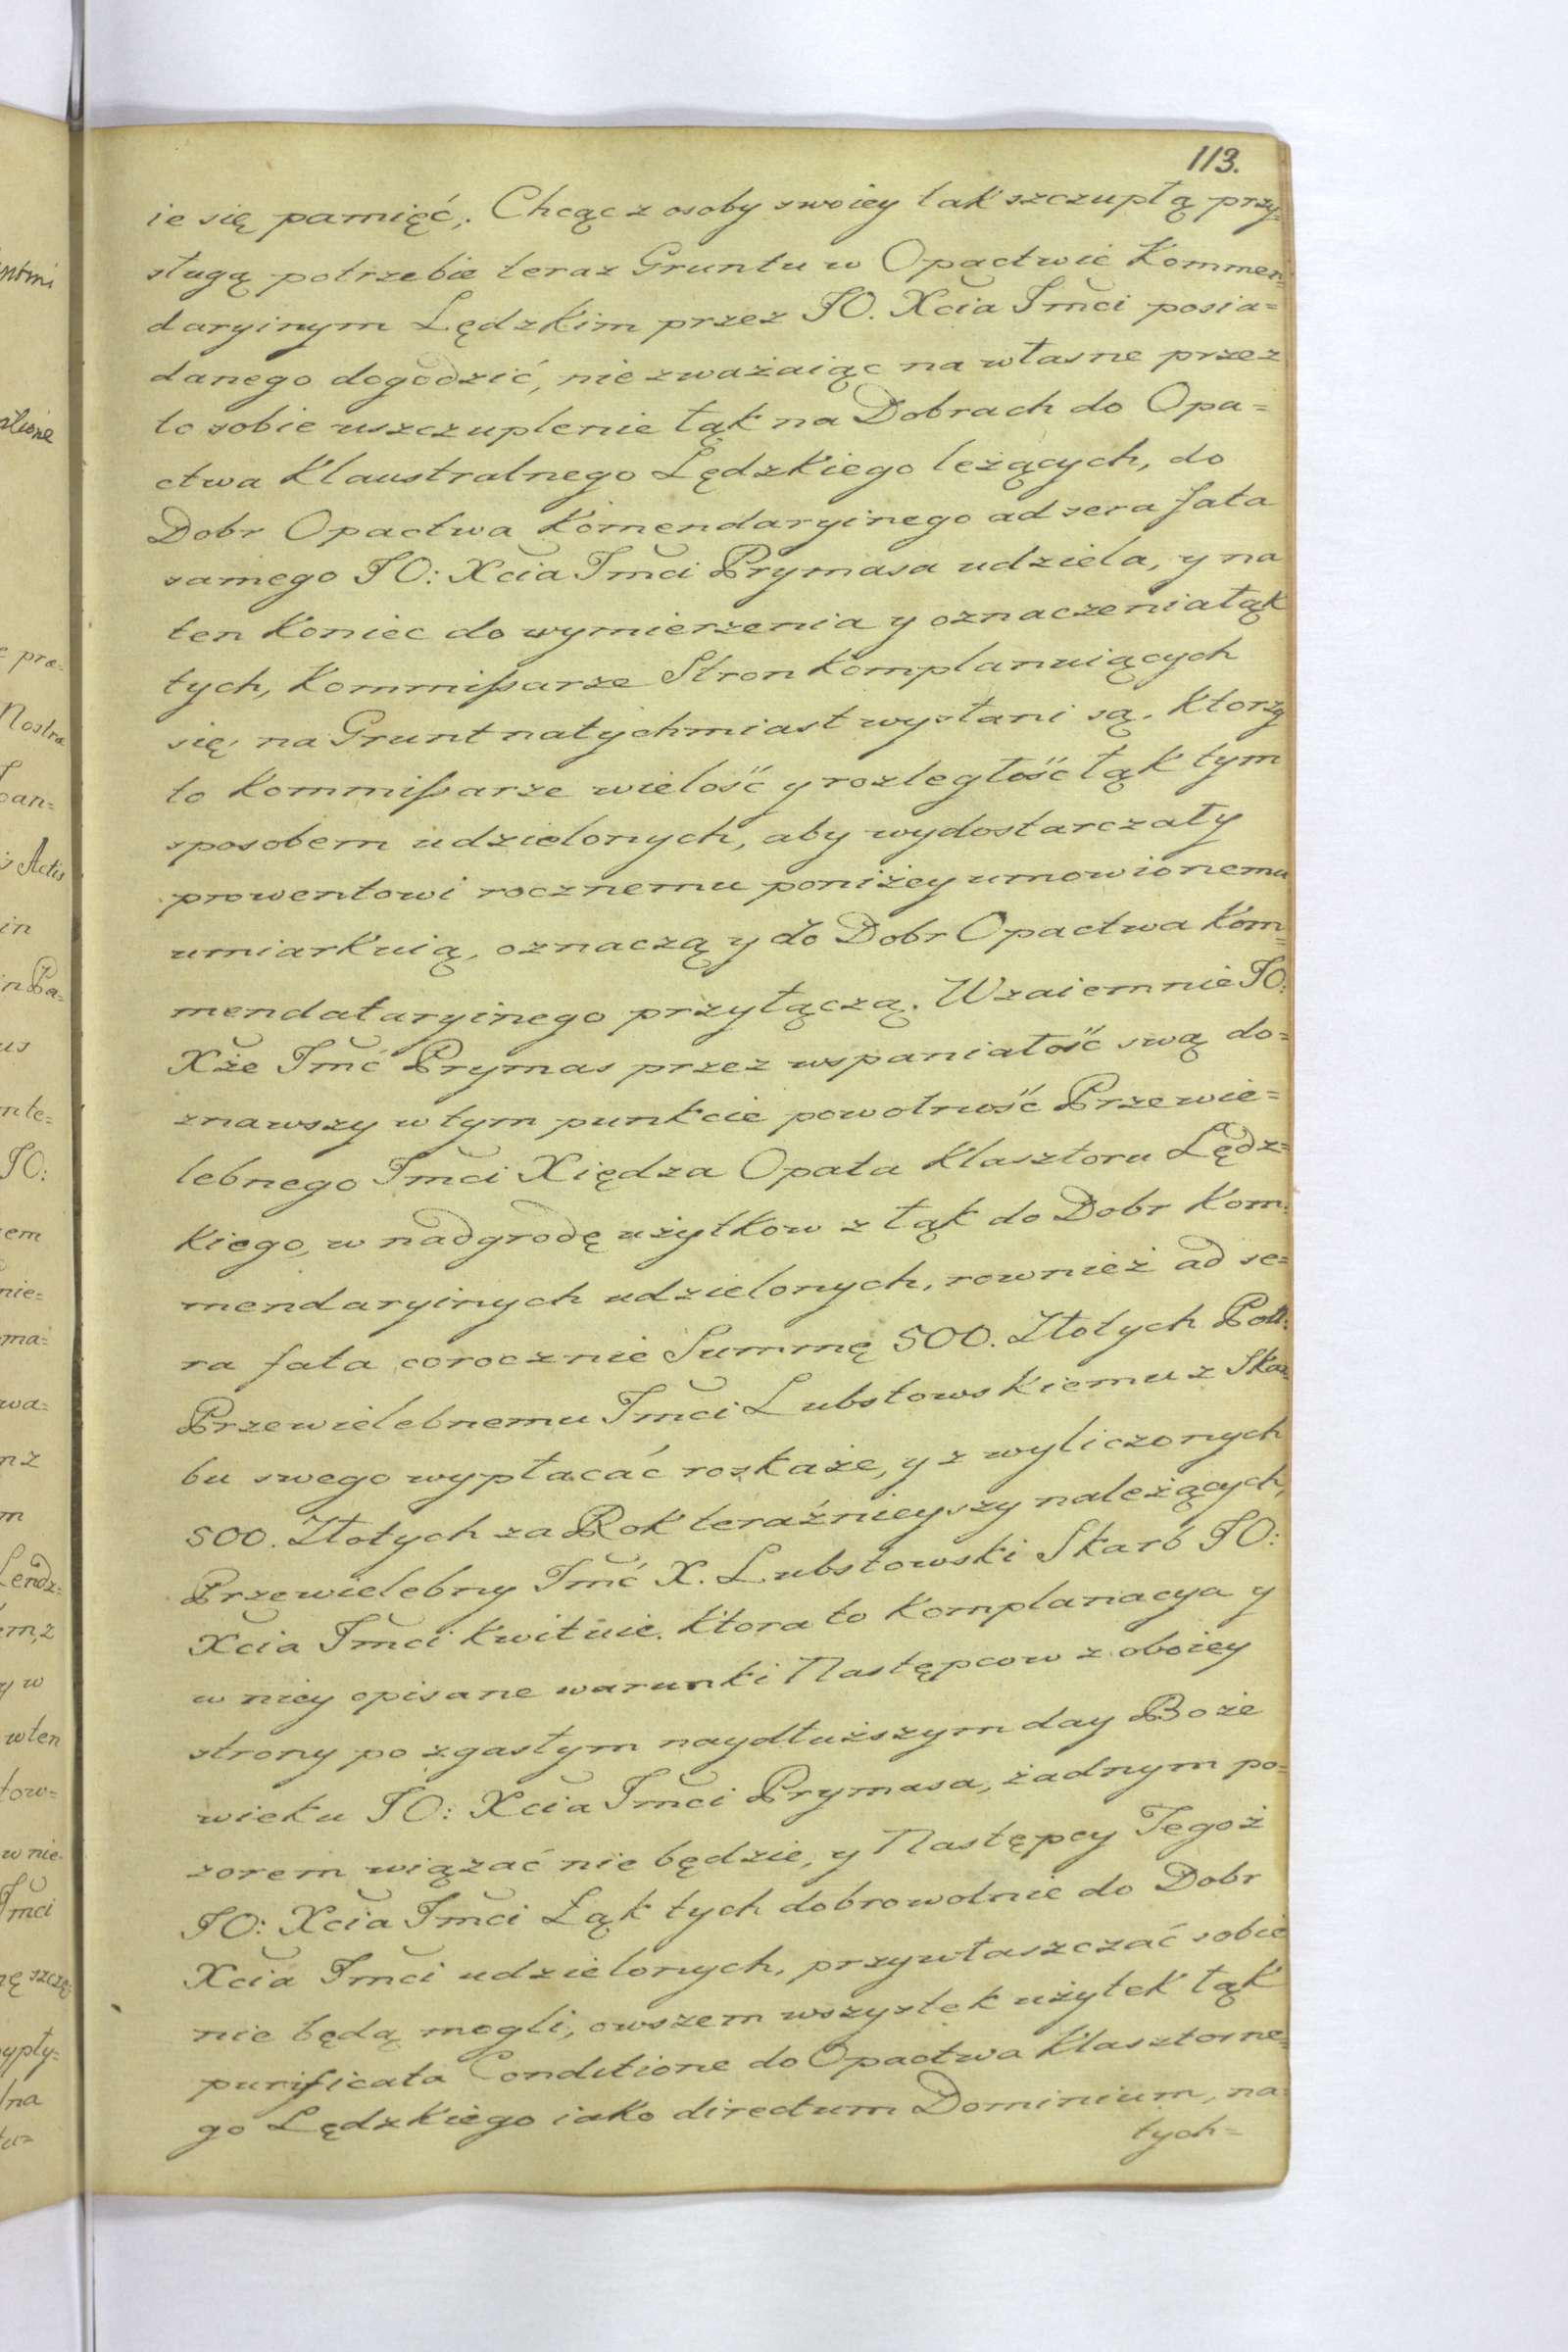 113.
ie się pamięć; Chcąc z osoby swoiey tak szczupłą przy=
sługą potrzebie teraz Gruntu w Opactwie Kommen=
daryinym Lędzkim przez JO. Xcia Jmci posia=
danego dogodzić, nie zważaiąc na własne przez
to sobie uszczuplenie łąk na Dobrach do Opa=
ctwa Klaustralnego Lędzkiego leżących, do
Dobr Opactwa Komendaryinego ad sera fata
samego JO: Xcia Jmci Prymasa udziela, y na
ten koniec do wymierzenia y oznaczenia łąk
tych, Kommißarze Stron komplanuiących
się, na Grunt natychmiast wysłani są. Ktorzy
to Kommißarze wielość y rozległość łąk tym
sposobem udzielonych, aby wydostarczały
prowentowi rocznemu poniżey umowionemu
umiarkuią, oznaczą y do Dobr Opactwa Kom=
mendataryinego przyłączą. Wzaiemnie JO:
Xże Jmć Prymas przez wspaniałość swą do=
znawszy w tym punkcie powolność Przewie=
lebnego Jmci Xiędza Opata Klasztoru Lędz=
kiego, w nadgrodę użytkow z łąk do Dobr Kom=
mendaryinych udzielonych, rownież ad se=
ra fata corocznie Summę 500. Złotych Poll:
Przewielebnemu Jmci Lubstowskiemu z Skar=
bu swego wypłacać roskaże, y z wyliczonych
500. Złotych za Rok teraźnieyszy należących,
Przewielebny Jmć X. Lubstowski Skarb JO:
Xcia Jmci kwituie. Ktora to Komplanacya y
w niey opisane warunki Następcow z oboiey
strony po zgasłym naydłuższym day Boże
wieku JO: Xcia Jmci Prymasa, żadnym po=
zorem wiązać nie będzie, y Następcy Tegoż
JO: Xcia Jmci Łąk tych dobrowolnie do Dobr
Xcia Jmci udzielonych, przywłaszczać sobie
nie będą mogli, owszem wszystek użytek łąk
purificata Conditione do Opactwa Klasztorne=
go Lędzkiego iako directum Dominium, na=
tych=